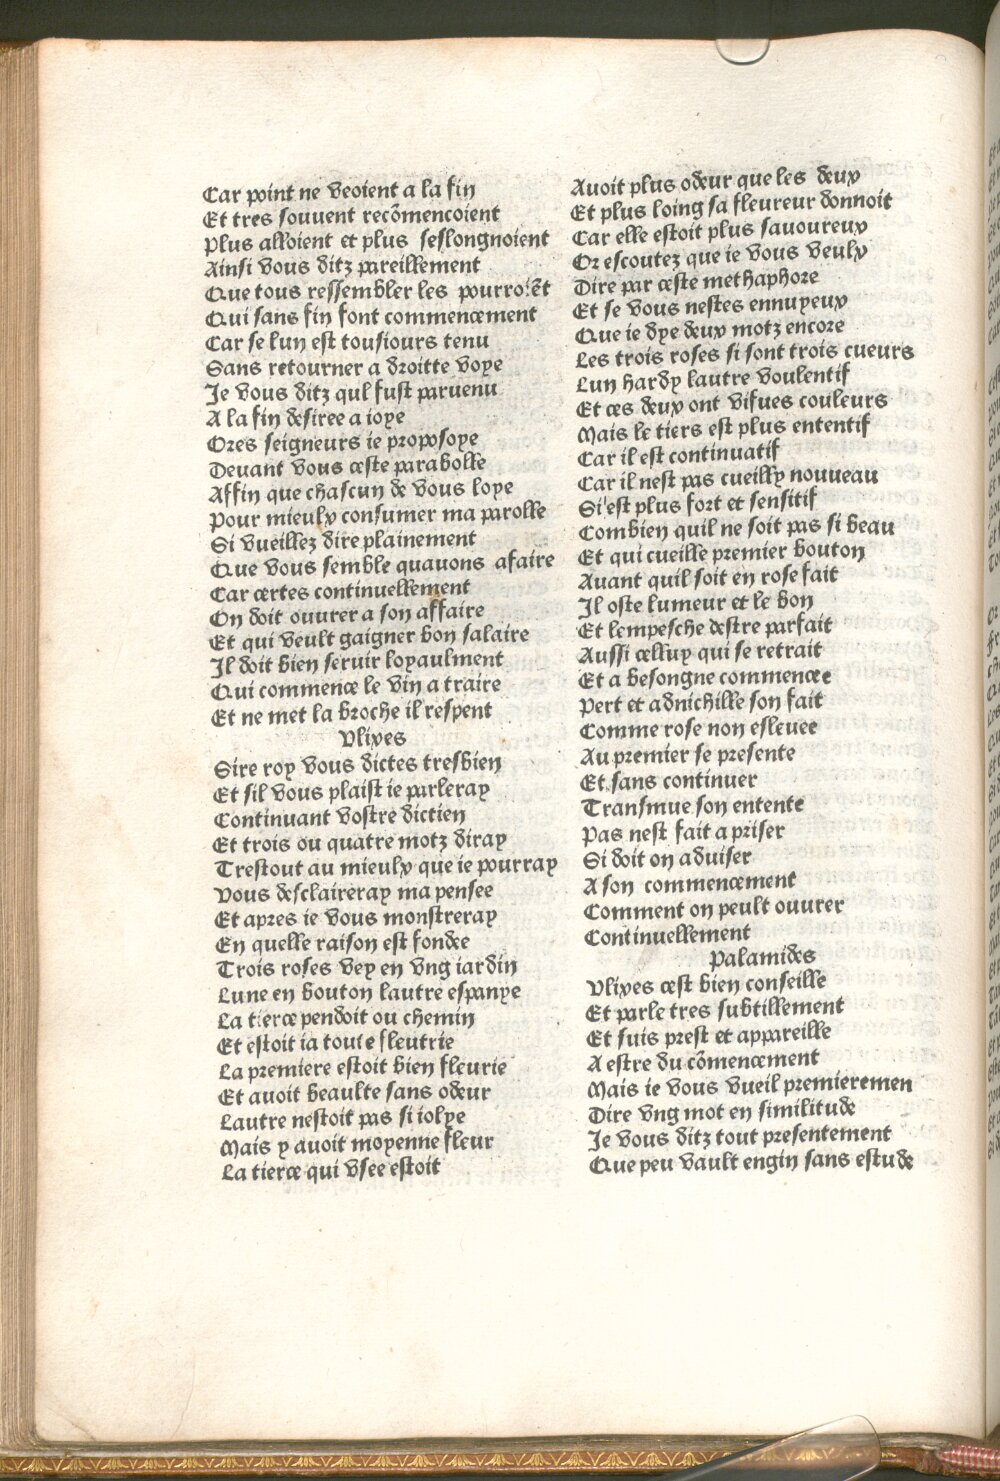 Car point ne veoient a la fin
Et tres souuent recõmencoient
Plus alloient et plus seslongnoient
Ainsi vous ditz pareillement
Que tous ressembler les pourroiẽt
Qui sans fin font commencement
Car se lun est tousiours tenu
Sans retourner a droitte voye
Je vous ditz qul fust paruenu
A la fin desiree a ioye
Ores seigneurs ie proposoye
Deuant vous ceste parabolle
Affin que chascun de vous loye
Pour mieulx consumer ma parolle
Si vueillez dire plainement
Que vous semble quauons afaire
Car certes continuellement
On doit ouurer a son affaire
Et qui veult gaigner bon salaire
Il doit bien seruir loyaulment
Qui commence le vin a traire
Et ne met la broche il respent
Vlixes
Sire roy vous dictes tresbien
Et sil vous plaist ie parleray
Continuant vostre dictien
Et trois ou quatre motz diray
Trestout au mieulx que ie pourray
Vous desclaireray ma pensee
Et apres ie vous monstreray
En quelle raison est fondee
Trois roses vey en vng iardin
Lune en bouton lautre espanye
La tierce pendoit ou chemin
Et estoit ia toute fleutrie
La premiere estoit bien fleurie
Et auoit beaulte sans odeur
Lautre nestoit pas si iolye
Mais y auoit moyenne fleur
La tierce qui vsee estoit
Auoit plus odeur que les deux
Et plus loing sa fleureur donnoit
Car elle estoit plus sauoureux
Or escoutez que ie vous veulx
Dire par ceste methaphore
Et se vous nestes ennuyeux
Que ie dye deux motz encore
Les trois roses si sont trois cueurs
Lun hardy lautre voulentif
Et ces deux ont vifues couleurs
Mais le tiers est plus ententif
Car il est continuatif
Car il nest pas cueilly nouueau
Si est plus fort et sensitif
Combien quil ne soit pas si beau
Et qui cueille premier bouton
Auant quil soit en rose fait
Il oste lumeur et le bon
Et lempesche destre parfait
Aussi celluy qui se retrait
Et a besongne commencee
Pert et adnichille son fait
Comme rose non esleuee
Au premier se presente
Et sans continuer
Transmue son entente
Pas nest fait a priser
Si doit on aduiser
A son commencement
Comment on peult ouurer
Continuellement
Palamides
Vlixes cest bien conseille
Et parle tres subtillement
Et suis prest et appareille
A estre du cõmencement
Mais ie vous vueil premieremen
Dire vng mot en similitude
Je vous ditz tout presentement
Que peu vault engin sans estude